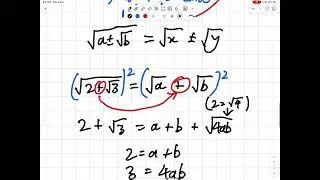 √(a±√b) = √x ± √y
(√(2+√3))² = (√a + √b)²
(2=√4)
2 + √3 = a + b + √4ab
2 = a+b
3 = 4ab